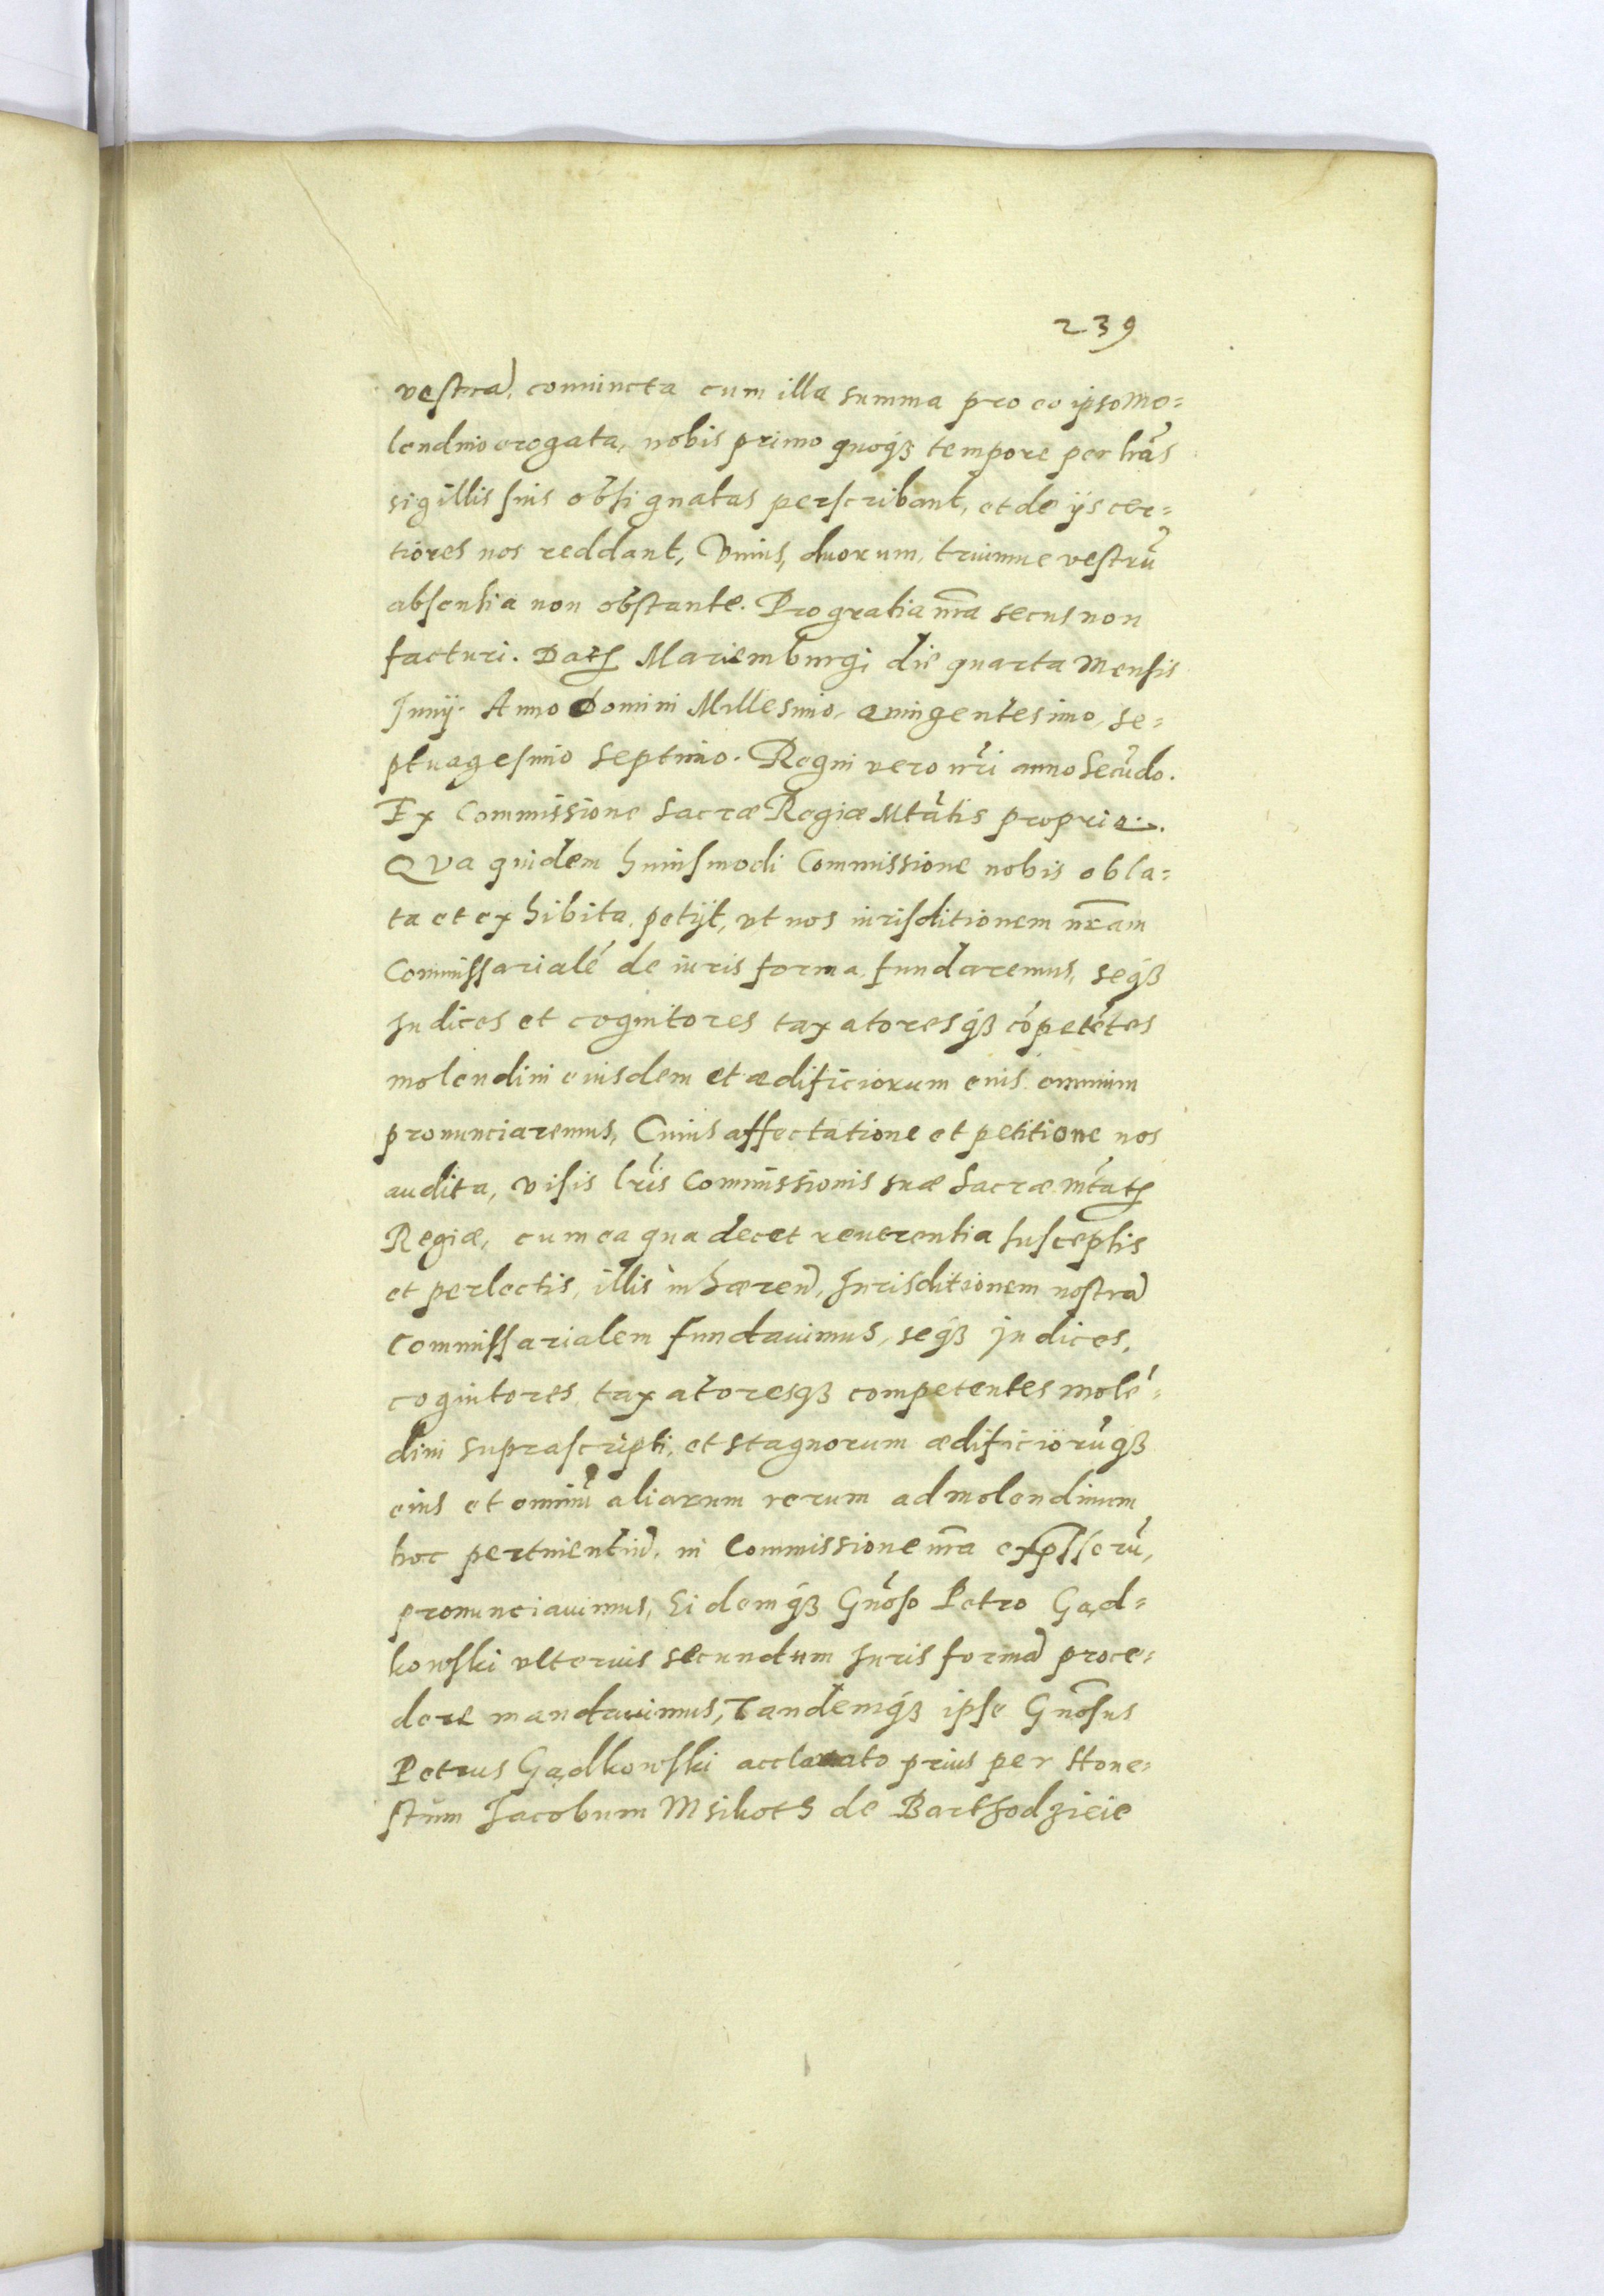 239
vestrã, coniuncta cum illa summa pro eo ipso Mo=
lendino erogata, nobis primo quoq₃ tempore per lrãs
sigillis suis obsignatas perscribant, et de ijs cer=
tiores nos reddant, Vnius, duorum, triumue vestrũ
absentia non obstante. Pro gratia nr̃a secus non
facturi. Datꝭ Mariemburgi die quarta Mensis
Junij. Anno Domini Millesimo, Quingentesimo, Se=
ptuagesimo Septimo. Regni vero nr̃i anno Secũdo.
Ex Commissione Sacræ Regiæ Mtãtis propria.
QVa quidem huiusmodi Commissione nobis obla=
ta et exhibita petijt, vt nos iurisditionem nr̃am
Commissarialẽ de iuris forma fundaremus, seq₃
Judices et cognitores taxatoresq₃ cõpetẽtes
molendini eiusdem et ædificiorum eius omnium
pronunciaremus, Cuius affectatione et petitione nos
audita, visis lr̃is Commissionis suæ Sacræ Mtãtꝭ
Regiæ, cum ea qua decet reuerentia susceptis
et perlectis, illis inhæreñ, Jurisditionem nostrã
Commissarialem fundauimus, seq₃ judices,
cognitores taxatoresq₃ competentes molẽ=
dini suprascripti, et stagnorum ædificiorũq₃
eius et omniũ aliarum rerum ad molendinum
hoc pertinentiũ, in Commissione nr̃a exp̃sserũ,
pronunciauimus, Eidemq₃ Gñoso Petro Gąd=
kowski vlterius secundum Juris formã proce=
dere mandauimus, Tandemq₃ ipse Gñosus
Petrus Gądkowski acclamato prius per Hone=
stum Jacobum Msihoth de Barthodzieie